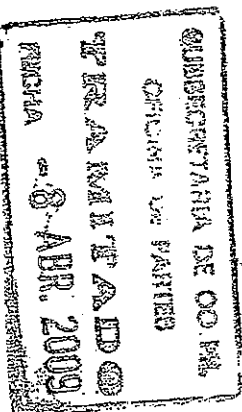 SUBSECRETARIA DE OO PP.
OFICINA DE PARTES
TRAMITADO
FECHA -8 ABR. 2009